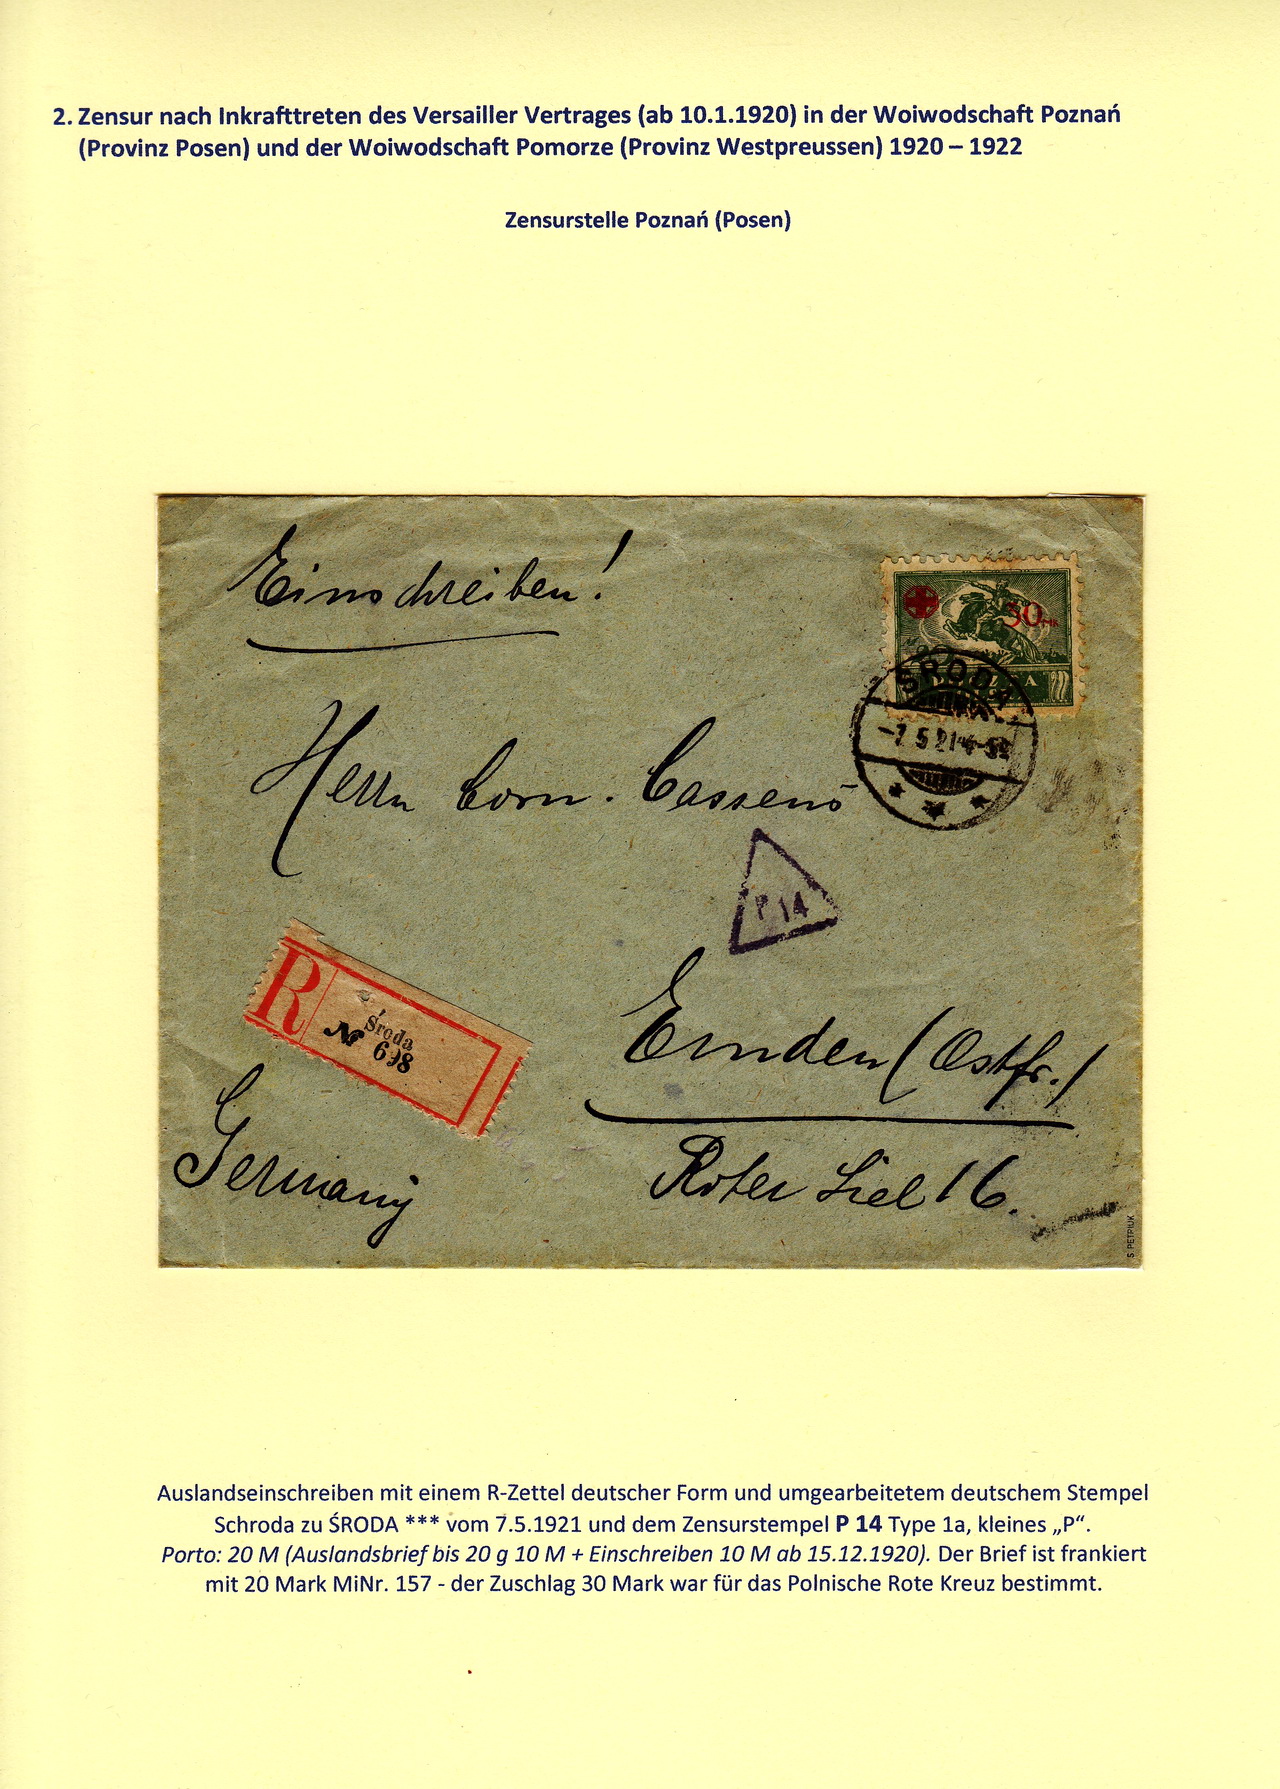 2. Zensur nach Inkrafttreten des Versailler Vertrages (ab 10.1.1920) in der Woiwodschaft Poznań
(Provinz Posen) und der Woiwodschaft Pomorze (Provinz Westpreussen) 1920 – 1922
Zensurstelle Poznań (Posen)
Einschreiben!
30 MK
ŚRODA
-7.5.21.4-5
* * *
Herrn Corn. Cassens
P 14
R
Środa
№ 698
Emden (Ostfr.)
Germany
Roter Siel 16.
S. PETRIUK
Auslandseinschreiben mit einem R-Zettel deutscher Form und umgearbeitetem deutschem Stempel
Schroda zu ŚRODA *** vom 7.5.1921 und dem Zensurstempel P 14 Type 1a, kleines „P“.
Porto: 20 M (Auslandsbrief bis 20 g 10 M + Einschreiben 10 M ab 15.12.1920). Der Brief ist frankiert
mit 20 Mark MiNr. 157 - der Zuschlag 30 Mark war für das Polnische Rote Kreuz bestimmt.